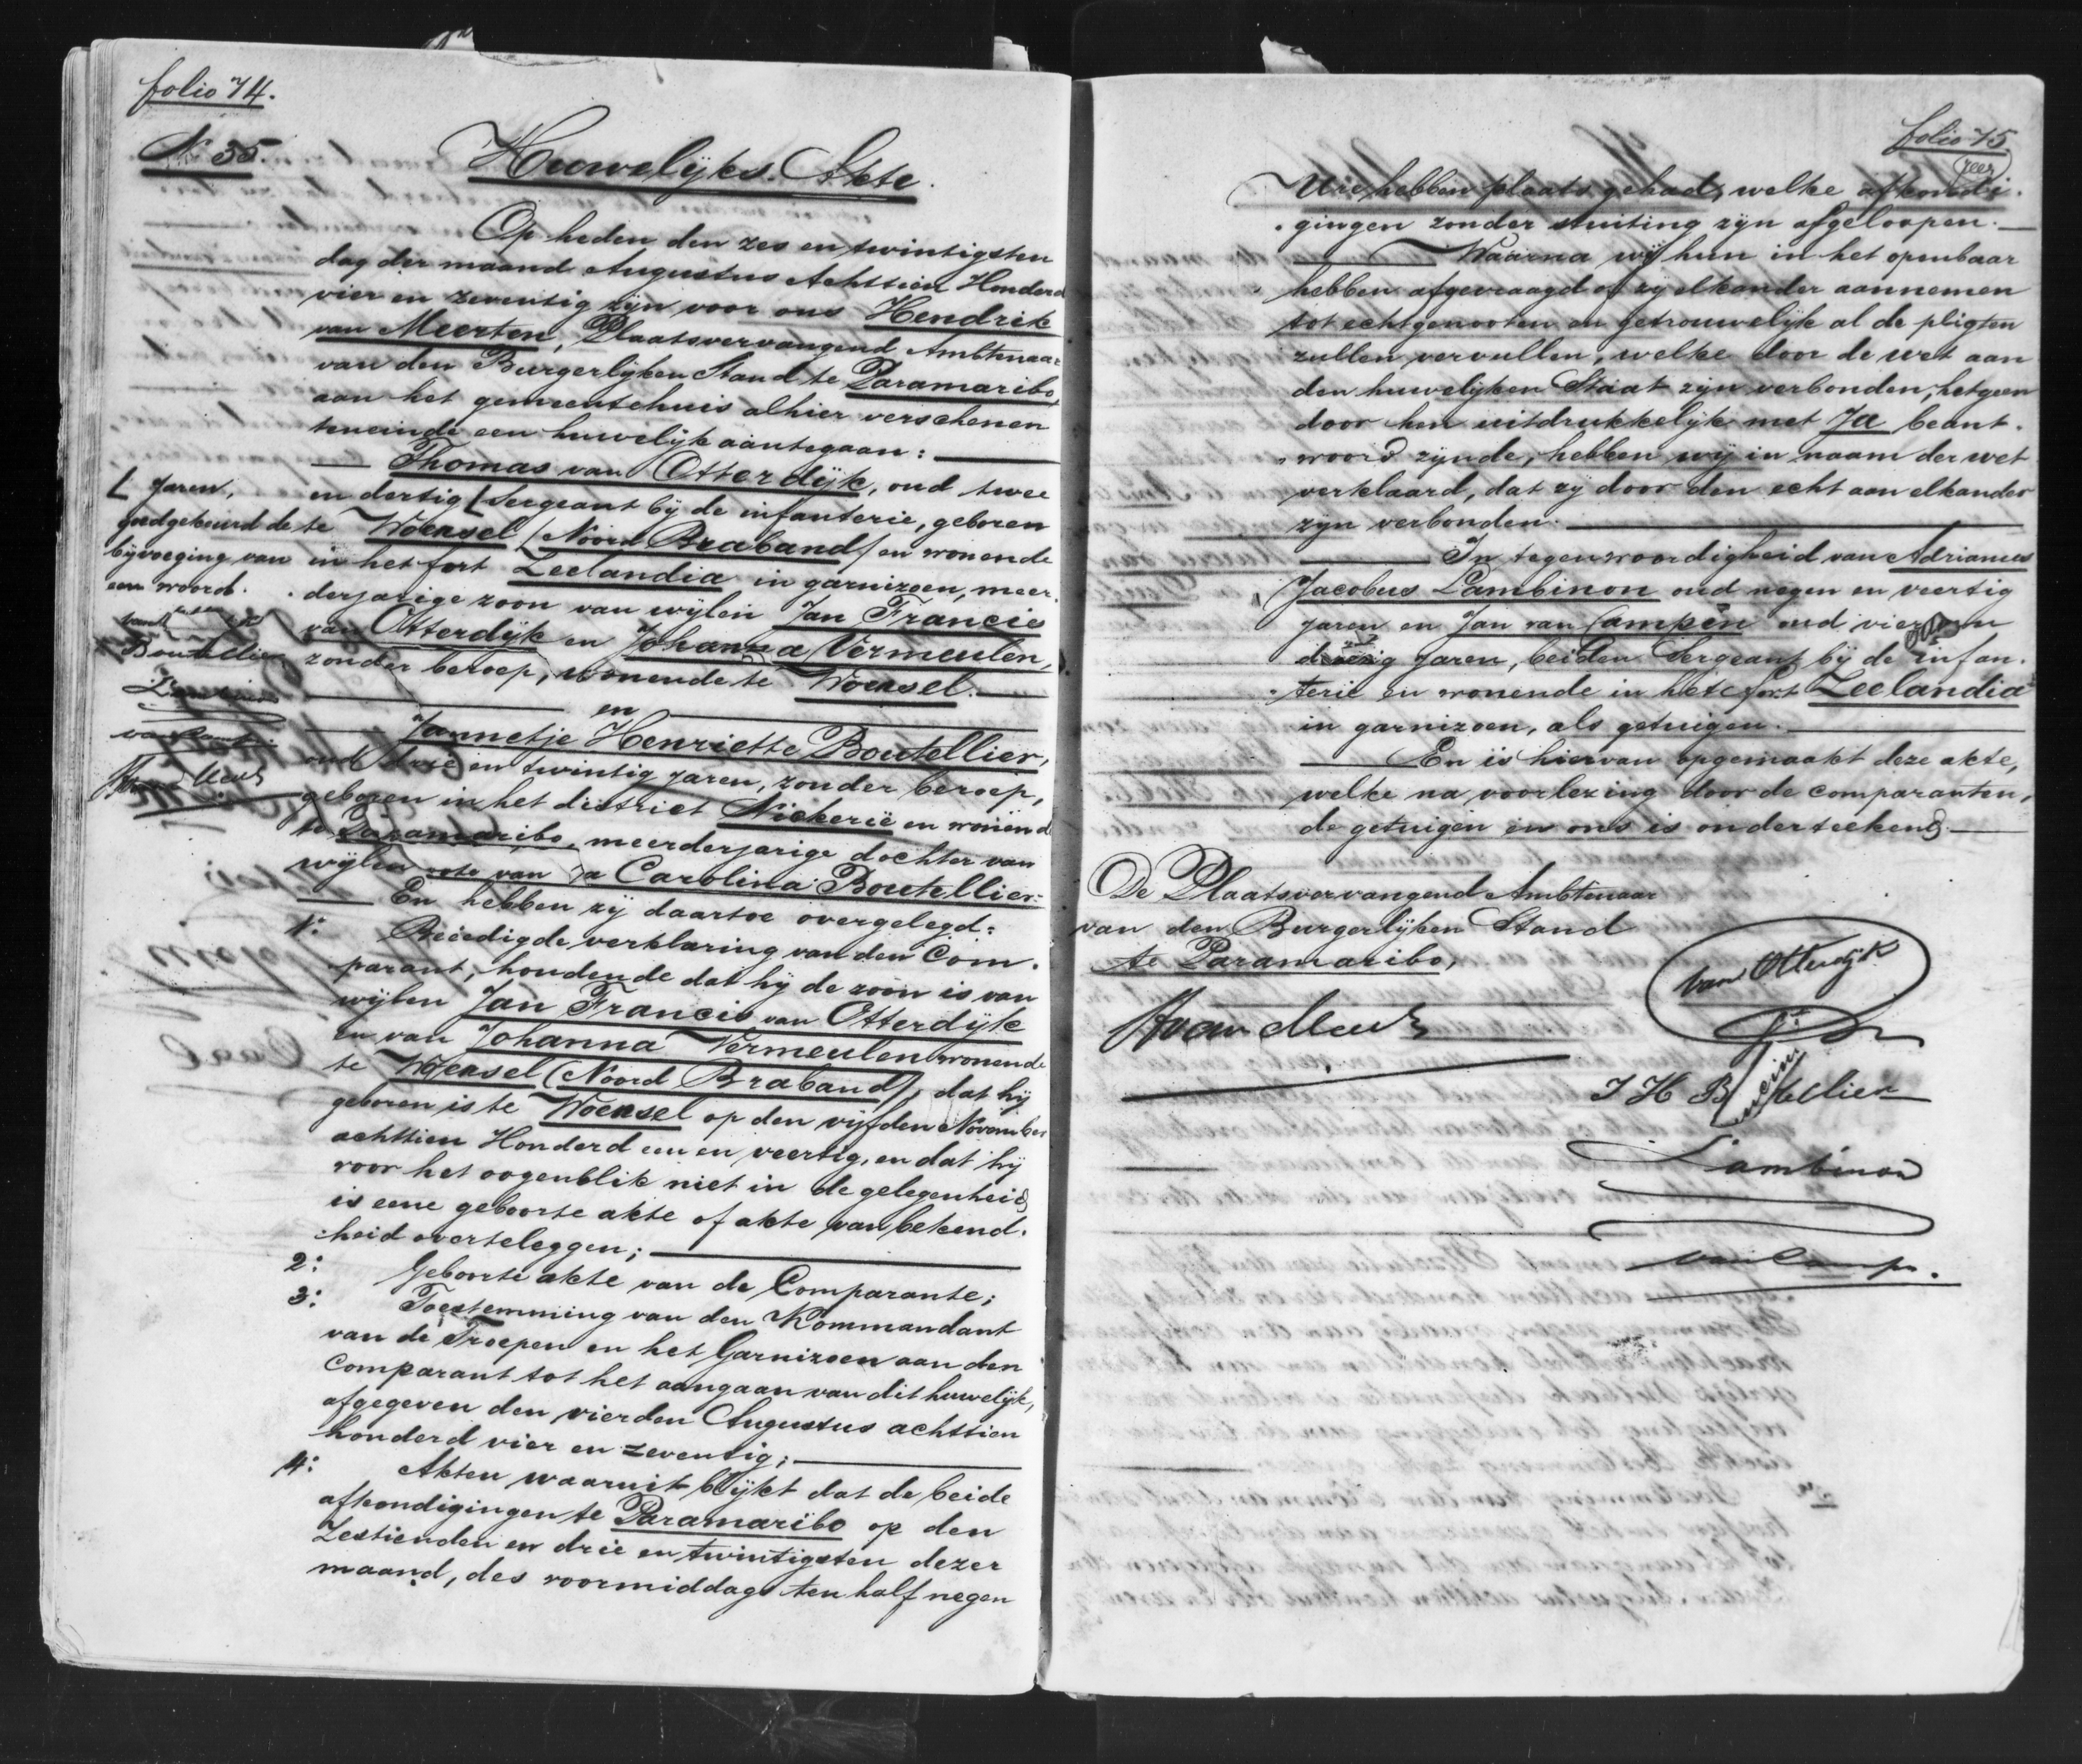 folio 74.
N 55.
Huwelijks. Akte.
Op heden den zes en twintigsten
dag der maand Augustus Achttien Honderd
vier en zeventig zijn voor ons Hendrik
van Meerten, Plaatsvervangend Ambtenaar
van den Burgerlijken Stand te Paramaribo,
aan het gemeentehuis alhier verschenen
teneinde een huwelijk aantegaan:
Thomas van Otterdijk, oud twee
en dertig ⌊ Sergeant bij de infanterie, geboren
te Woensel (Noord Braband) en wonende
in het fort Zeelandia in garnizoen, meer-
derjarige zoon van wijlen Jan Francis
van Otterdijk en Johanna Vermeulen,
zonder beroep, wonende te Woensel.
en
Jannetje Henriette Boutellier,
oud drie en twintig jaren, zonder beroep,
geboren in het district Nickerie en wonende
te Paramaribo, meerderjarige dochter van
wijlen van Carolina Boutellier.
En hebben zij daartoe overgelegd:
1: Beëedigde verklaring van den Com-
parant, houdende dat hij de zoon is van
wijlen Jan Francis van Otterdijk
en van Johanna Vermeulen wonende
te Woensel (Noord Braband), dat hij
geboren is te Woensel op den vijfden November
achttien Honderd een en veertig, en dat hij
voor het oogenblik niet in de gelegenheid
is eene geboorte akte of akte van bekend-
heid overteleggen;
2: Geboorte akte van de Comparante;
3: Toestemming van den Kommandant
van de Troepen en het Garnizoen aan den
Comparant tot het aangaan van dit huwelijk,
afgegeven den vierden Augustus achttien
honderd vier en zeventig;
4: Akten waaruit blijkt dat de beide
afkondigingen te Paramaribo op den
Zestienden en drie en twintigsten dezer
maand, des voormiddags ten half negen
⌊ jaren,
goedgekeurd de
bijvoeging van
een woord.
Boutellier
folio 75
Ure hebben plaats gehad, welke afkondi-
gingen zonder stuiting zijn afgeloopen.
Waarna wij hun in het openbaar
hebben afgevraagd of zij elkander aannemen
tot echtgenooten en getrouwelijk al de pligten
zullen vervullen, welke door de wet aan
den huwelijken Staat zijn verbonden, hetgeen
door hen uitdrukkelijk met Ja beant-
woord zijnde, hebben wij in naam der wet
verklaard, dat zij door den echt aan elkander
zijn verbonden.
In tegenwoordigheid van Adrianus
Jacobus Lambinon oud negen en veertig
jaren en Jan van Campen oud vier en
dertig jaren, beiden Sergeant bij de infan-
terie en wonende in het fort Zeelandia
in garnizoen, als getuigen.
En is hiervan opgemaakt deze akte,
welke na voorlezing door de comparanten,
de getuigen en ons is onderteekend.
De Plaatsvervangend Ambtenaar
van den Burgerlijken Stand
te Paramaribo,
van Otterdijk
H van Meerten
J H Boutellier
Lambinon
van Campen.